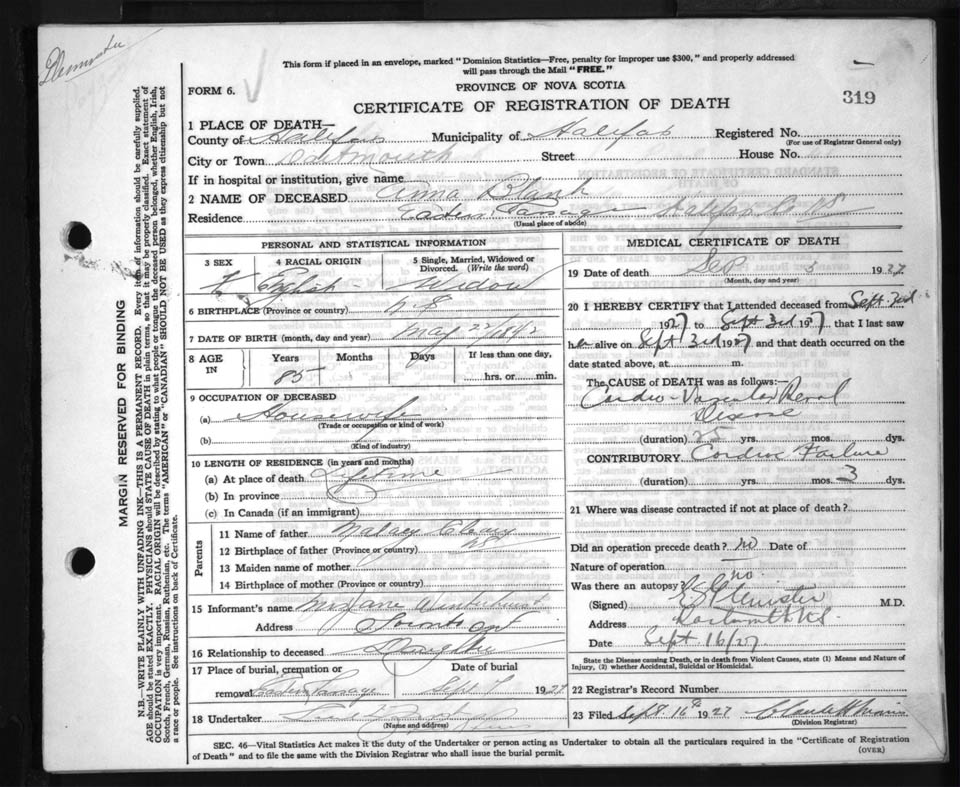 This form if placed in an envelope, marked "Dominion Statistics—Free, penalty for improper use $300," and properly addressed
will pass through the Mail "FREE."
FORM 6.
PROVINCE OF NOVA SCOTIA
CERTIFICATE OF REGISTRATION OF DEATH
319
1 PLACE OF DEATH—
County of Halifax Municipality of Halifax Registered No.
(For use of Registrar General only)
City or Town Dartmouth Street House No.
If in hospital or institution, give name
2 NAME OF DECEASED Anna Blank
Residence Eastern Passage Halifax Co NS
(Usual place of abode)
PERSONAL AND STATISTICAL INFORMATION
3 SEX 4 RACIAL ORIGIN 5 Single, Married, Widowed or
Divorced. (Write the word)
F English Widow
6 BIRTHPLACE (Province or country) N S
7 DATE OF BIRTH (month, day and year) May 22/1842
8 AGE IN Years Months Days If less than one day,
85 hrs. or min.
9 OCCUPATION OF DECEASED
(a) Housewife
(Trade or occupation or kind of work)
(b)
(Kind of industry)
10 LENGTH OF RESIDENCE (in years and months)
(a) At place of death Life time
(b) In province
(c) In Canada (if an immigrant)
Parents
11 Name of father
12 Birthplace of father (Province or country) NS
13 Maiden name of mother
14 Birthplace of mother (Province or country)
15 Informant's name Mrs Jane
Address Toronto Ont
16 Relationship to deceased Daughter
17 Place of burial, cremation or Date of burial
removal Eastern Passage Sept 7 1927
18 Undertaker
(Name and address)
MEDICAL CERTIFICATE OF DEATH
19 Date of death Sep 3 1927
(Month, day and year)
20 I HEREBY CERTIFY that I attended deceased from Sept 3rd
1927 to Sept 3rd 1927 that I last saw
her alive on Sept 3rd 1927 and that death occurred on the
date stated above, at m.
The CAUSE OF DEATH was as follows:
Cardio-Vascular Renal
Disease
(duration) 25 yrs. mos. dys.
CONTRIBUTORY Cardiac Failure
(duration) yrs. mos. 3 dys.
21 Where was disease contracted if not at place of death?
Did an operation precede death? no Date of
Nature of operation
Was there an autopsy? no
(Signed) M.D.
Address Dartmouth NS
Date Sept 16/27
State the Disease causing Death, or in death from Violent Causes, state (1) Means and Nature of
Injury, (2) whether Accidental, Suicidal or Homicidal.
22 Registrar's Record Number
23 Filed Sept. 16th 1927
(Division Registrar)
SEC. 46—Vital Statistics Act makes it the duty of the Undertaker or person acting as Undertaker to obtain all the particulars required in the "Certificate of Registration
of Death" and to file the same with the Division Registrar who shall issue the burial permit.
(OVER)
MARGIN RESERVED FOR BINDING
N.B.—WRITE PLAINLY WITH UNFADING INK—THIS IS A PERMANENT RECORD. Every item of information should be carefully supplied.
AGE should be stated EXACTLY. PHYSICIANS should STATE CAUSE OF DEATH in plain terms, so that it may be properly classified. Exact statement of
OCCUPATION is very important. RACIAL ORIGIN will be described by stating to what people or tongue the deceased person belonged, whether English, Irish,
Scotch, French, German, Russian, Ruthenian, etc. The terms "AMERICAN" or "CANADIAN" SHOULD NOT BE USED as they express citizenship but not
a race or people. See instructions on back of Certificate.